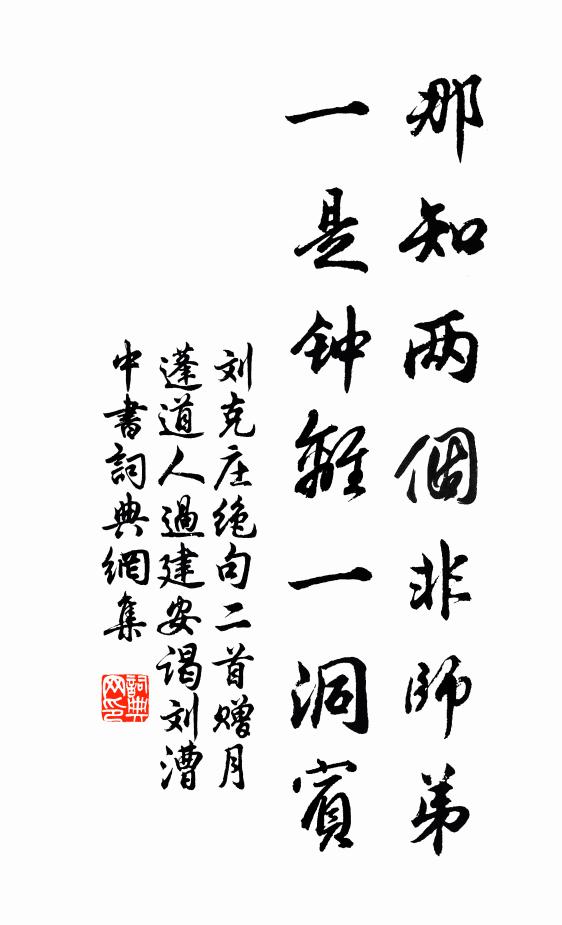 那知两個非師弟
一是钟離一洞賓
刘克庄绝句二首赠月
蓬道人過建安谒刘漕
中書詞典網集
詞典网印